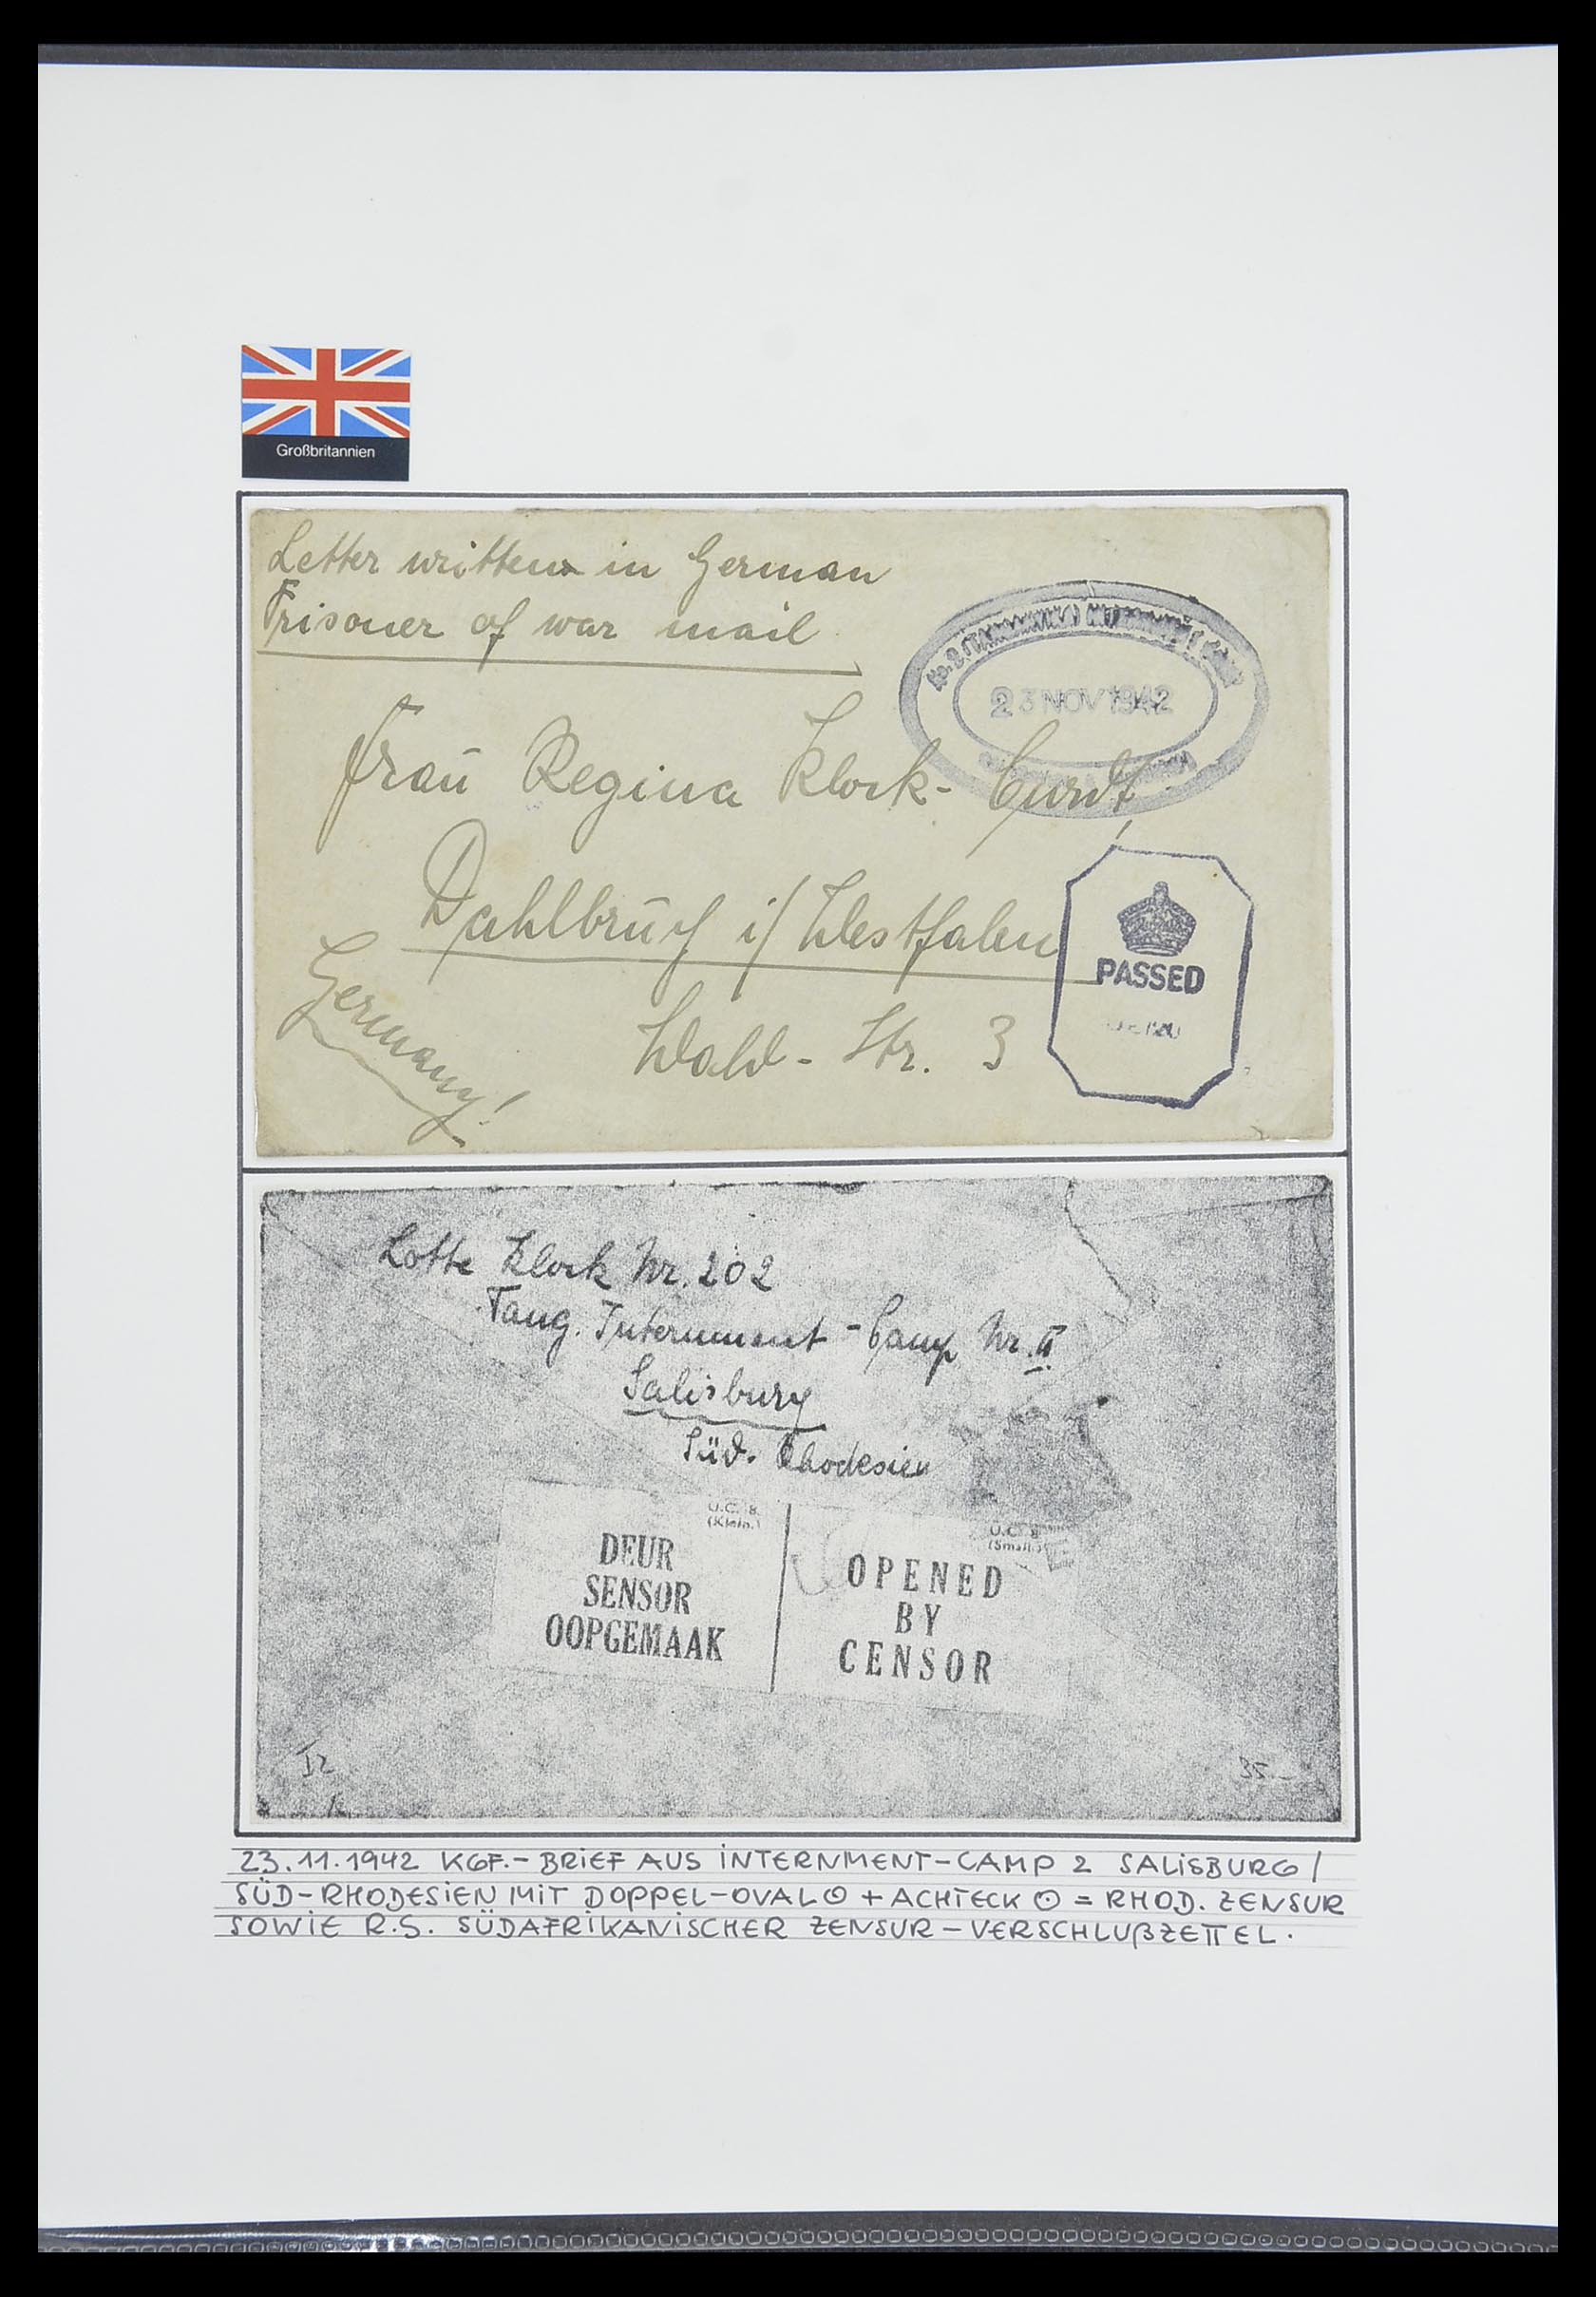 Großbritannien
Letter written in German
Prisoner of war mail
No. 2
23 NOV 1942
Frau Regina Klock-Curdt,
Dahlbruch i/Westfalen
Wald-Str. 3
Germany!
PASSED
Lotte Klock Nr. 202
Tang. Internment-Camp Nr. II
Salisbury
Süd. Rhodesien
U.C. 8.
(Klein.)
DEUR
SENSOR
OOPGEMAAK
U.C. 8
(Small.)
OPENED
BY
CENSOR
I2
35.–
23.11.1942 KGF.-BRIEF AUS INTERNMENT-CAMP 2 SALISBURG/
SÜD-RHODESIEN MIT DOPPEL-OVAL⊙ + ACHTECK ⊙ = RHOD. ZENSUR
SOWIE R.S. SÜDAFRIKANISCHER ZENSUR-VERSCHLUßZETTEL.